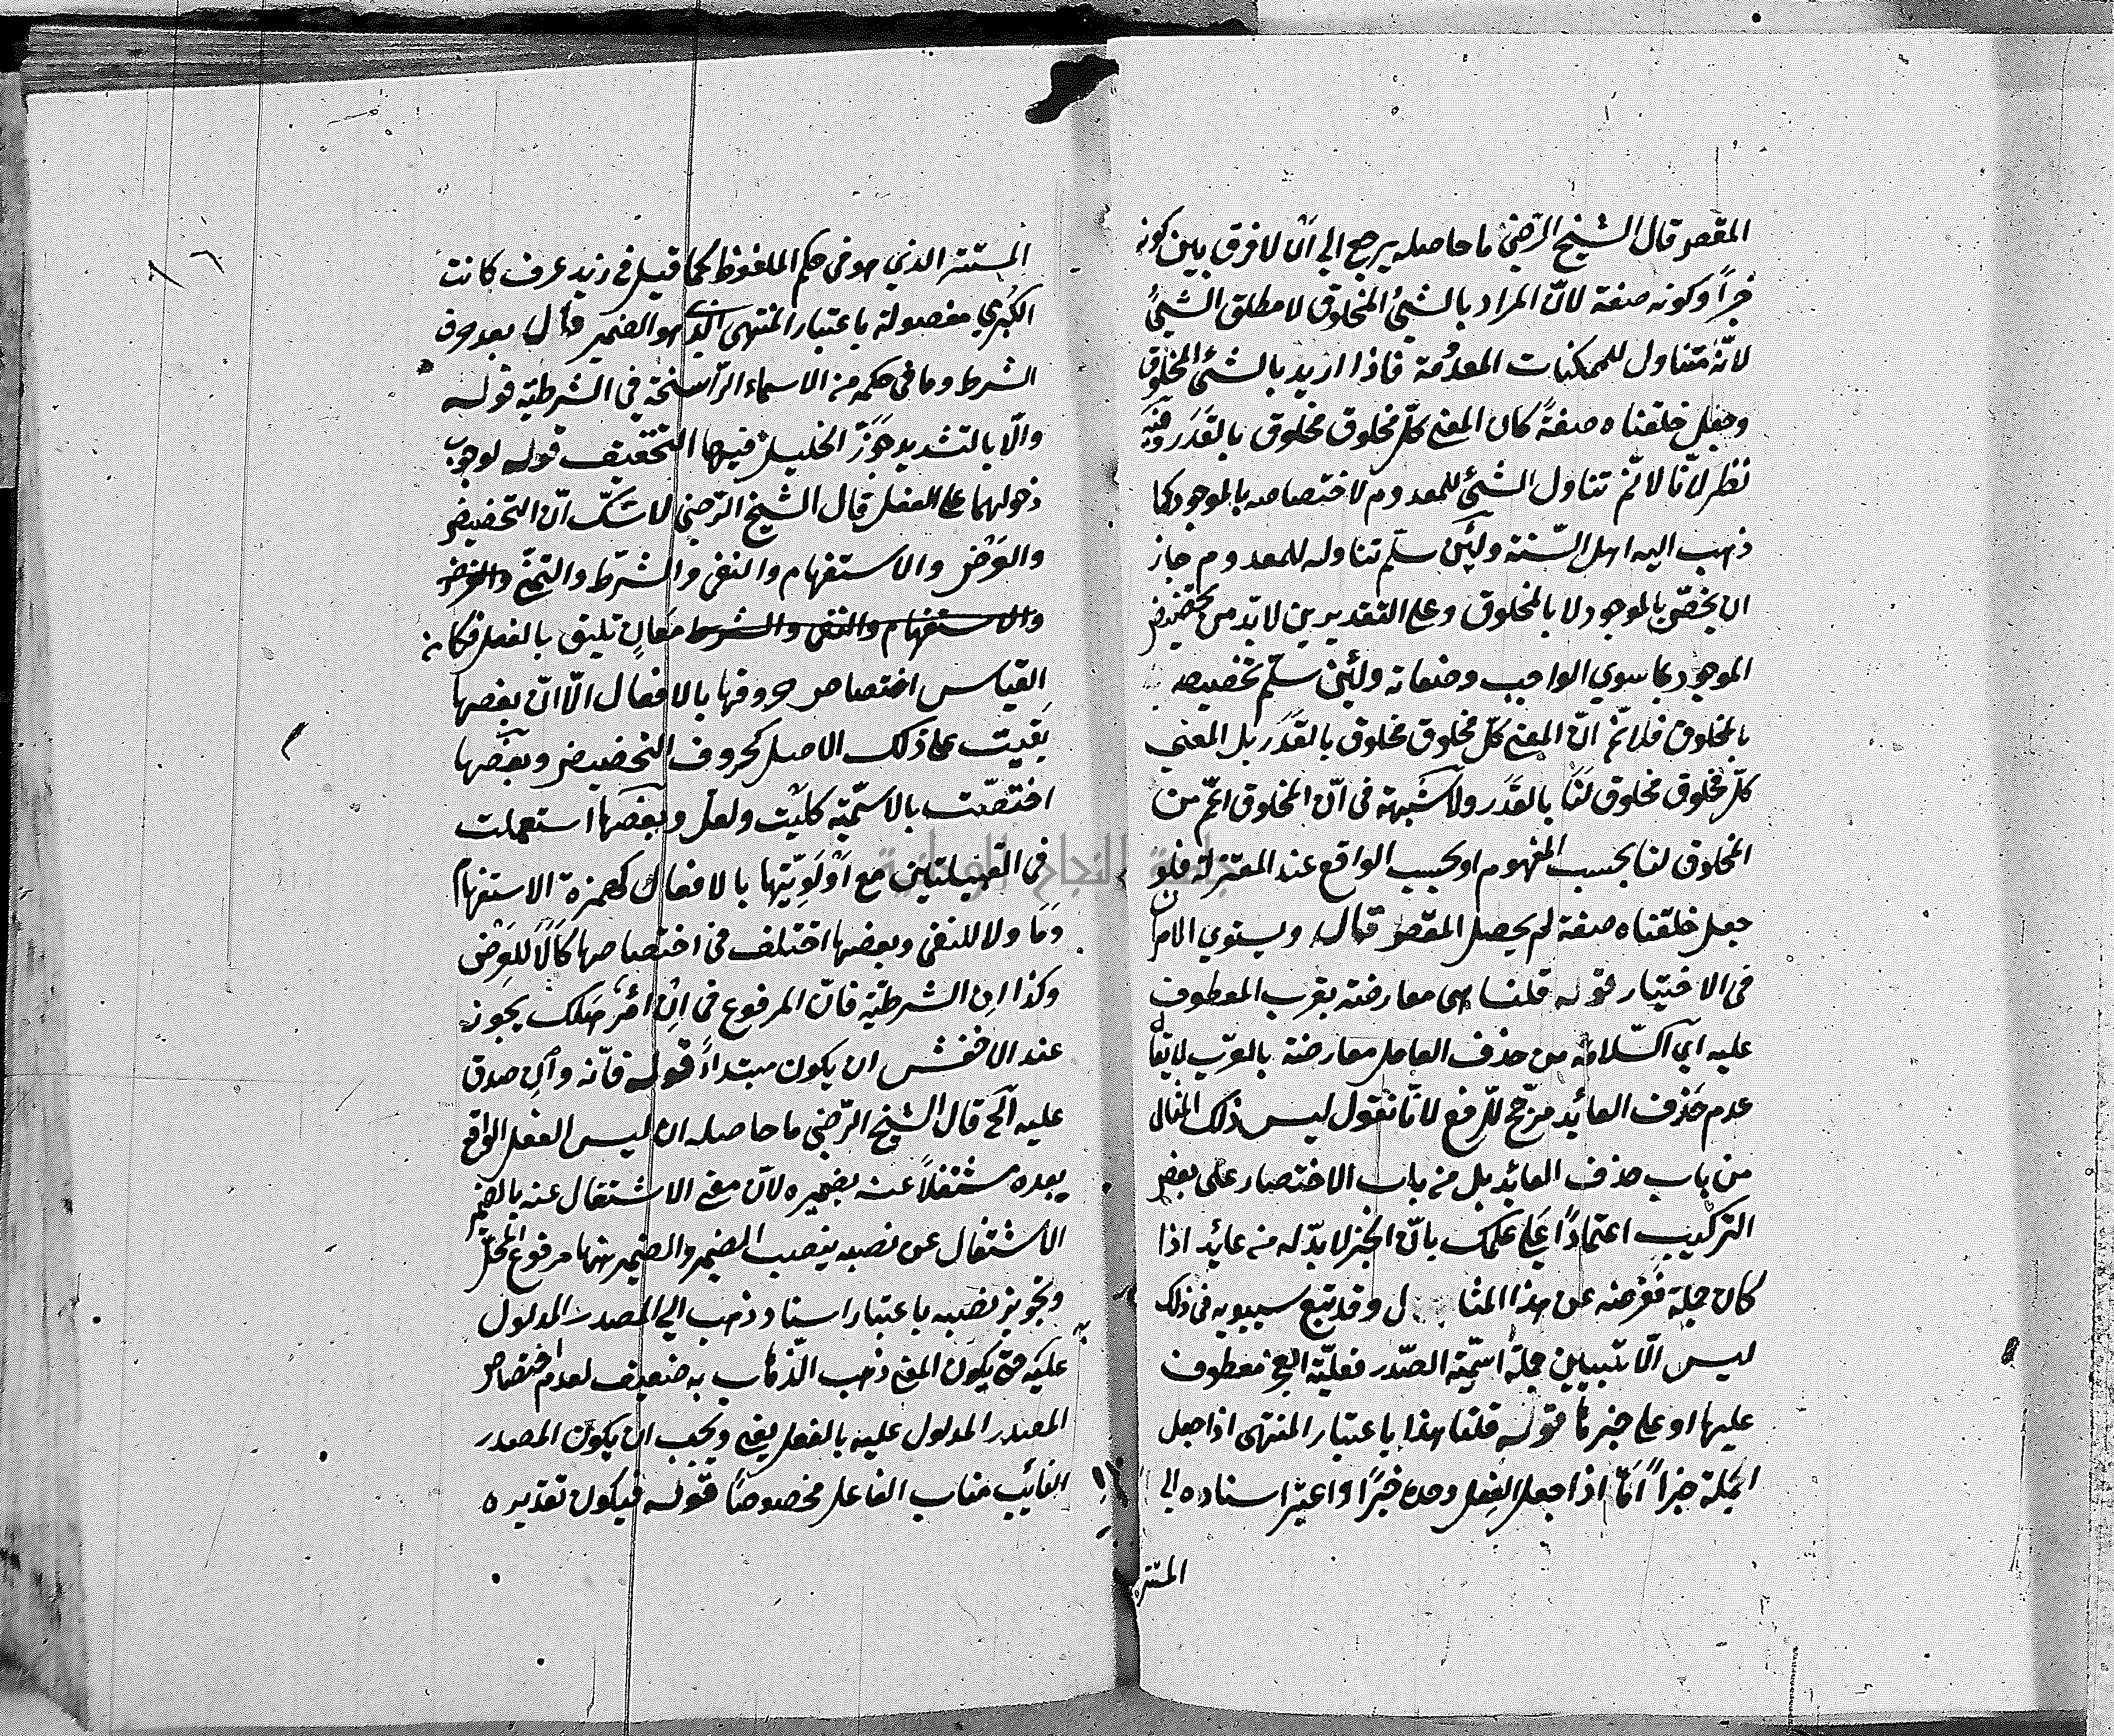 المقصو قال الشيخ الرّضيّ ما حاصله يرجع الي انّ لا فرق بين كونه
خبراً وكونه صفة لانّ المراد بالشئ المخلوق لا مطلق الشئ
لانّه متناول للممكنات المعدومة فاذا اريد بالشئ المخلوق
وجعل خلقناه صفةً كان المعنى كلّ مخلوق مخلوق بالقَدَر وفيه
نظر لانّا لا نّم تناول الشئ للمعدوم لاختصاصه بالموجود كما
ذهب اليه اهل السّنة ولئن سلّم تناوله للمعدوم جاز
ان يخصّ بالموجود لا بالمخلوق وعلى التقديرين لا بدّ من تخصيص
الموجود بما سوي الواجب وصفاته ولئن سلّم تخصيصه
بالمخلوق فلا نّم انّ المعنى كلّ مخلوق مخلوق بالقَدَر بل المعني
كلّ مخلوق مخلوق لَنَا بالقَدَر ولا شبهة في انّ المخلوق اعّم من
المخلوق لنا بحسب المفهوم او بحسب الواقع عند المعتزلة فلو
جعل خلقناه صفة لم يحصل المقصو قال ويستوي الامران
في الاختيار قوله قلنا هي معارضة بقرب المعطوف
عليه اي السّلامة من حذف العامل معارضة بالقرب لا يقا
عدم حذف العائد مرجّح للرّفع لانّا نقول ليس ذلك المثال
من باب حذف العائد بل من باب الاختصار على بعض
التركيب اعتمادًا على علمك بانّ الخبر لا بدّ له من عائد اذا
كان جملة فغرضه من هذا المثال وقد تبع سيبويه في ذلك
ليس الّا تبيين جملة اسميّة الصّدر فعليّة العجز معطوف
عليها او على خبرها قوله قلنا هذا باعتبار المنتهى اذا جعل
الجملة خبراً امّا اذا جعل الفعل وحده خبرًا واعتبر اسناده الى
المستتر
المستتر الذي هو في حكم الملفوظ كما قيل في زيد عرف كانت
الكبري مفصولة باعتبار المنتهى الّذي هو الضمير قال بعد حرف
الشرط وما في حكمه من الاسماء الرّاسخة في الشرطيّة قوله
والّا بالتشديد جَوَّزَ الخليل فيها التخفيف قوله لوجوب
دخولهما على الفعل قال الشيخ الرّضيّ لا شكّ انّ التحضيض
والعَرْض والاستفهام والنفي والشّرط والتمنّي والعرض
والاستفهام والنفي والشرط مَعانٍ تليق بالفعل فكان
القياس اختصاص حروفها بالافعال الّا انّ بعضها
بَقيت على ذلك الاصل كحروف التحضيض وبعضها
اختصّت بالاسميّة كلَيْت ولعلّ وبعضها استعملت
في القبيلتين مع اَوْلَوِيّتها بالافعال كهمزة الاستفهام
وَمَا ولا للنفي وبعضها اختلف في اختصاصها كَاَلَا للعَرْض
وكذا اِن الشرطيّة فانّ المرفوع في اِنْ امْرُؤٌ هَلَك يجوز
عند الاخفش ان يكون مبتداءً قوله فانّه واِن صدق
عليه آلخ قال الشيخ الرّضيّ ما حاصله ان ليس الفعل الواقع
بعده مشتغلاً عنه بضميره لانّ معنى الاشتغال عنه بالضمير
الاشتغال عن نصبه بنصب الضمير والضمير ههنا مرفوع المحلّ
وتجويز نصبه باعتبار اسناد ذهب الي المصدر المدلول
عليه حتّى يكون المعنى ذهب الذّهاب به ضعيف لعدم اختصاص
المصدر المدلول عليه بالفعل يعني ويجب ان يكون المصدر
النائب مناب الفاعل مخصوصًا قوله فيكون تقديره
جامعة النجاح الوطنية